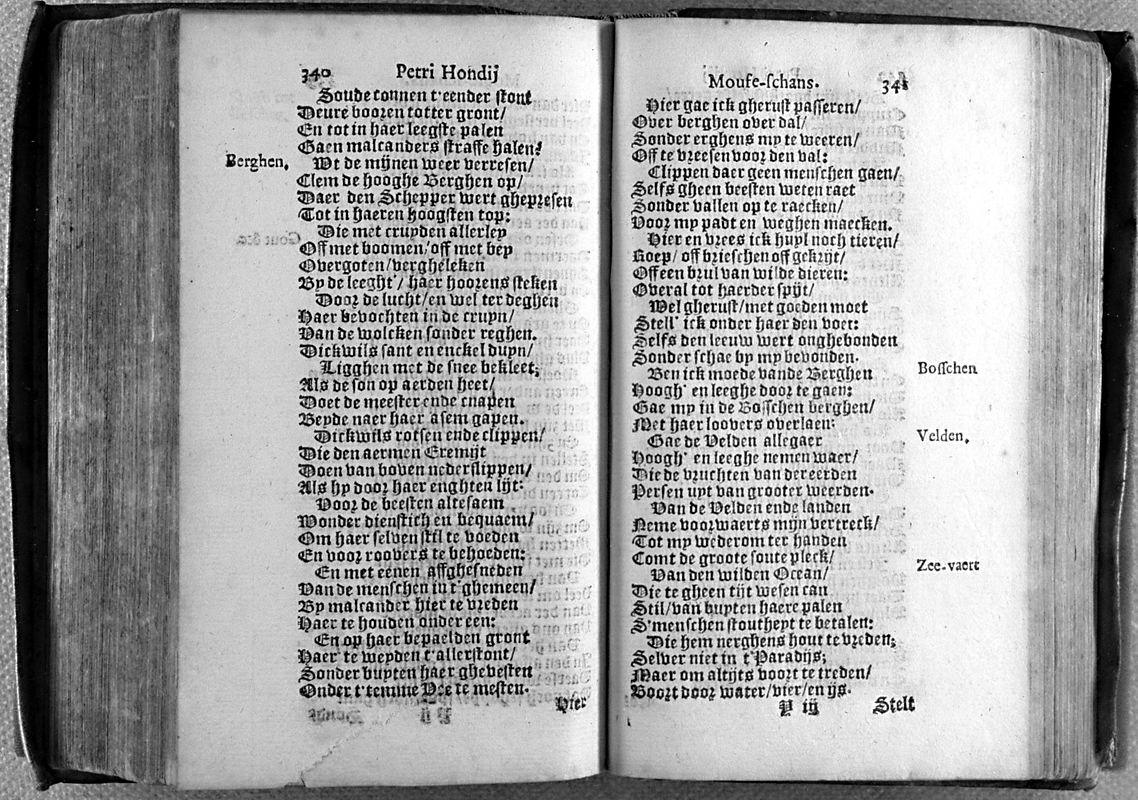 340 Petri Hondij
Soude connen t'eender stont
Deure boozen totter gront/
En tot in haer leegste palen
Gaen malcanders straffe halen?
Berghen. Wt de mijnen weer verresen/
Clem de hooghe Berghen op/
Daer den Schepper wert ghepresen
Tot in haeren hoogsten top:
Die met cruyden allerley
Off met boomen/ off met bey
Overgoten/ vergheleken
By de leeght'/ haer hoorens steken
Door de lucht/ en wel ter deghen
Haer bevochten in de cruyn/
Van de wolcken sonder reghen.
Dickwils sant en enckel duyn/
Ligghen met de snee bekleet;
Als de son op aerden heet/
Doet de meester ende cnapen
Beyde naer haer asem gapen.
Dickwils rotsen ende clippen/
Die den aermen Eremijt
Doen van boven nederslippen/
Als hy door haer enghten lijt:
Voor de beesten altesaem
Wonder dienstich en bequaem/
Om haer selven stil te voeden
En voor roovers te behoeden:
En met eenen affghesneden
Van de menschen in t'ghemeen/
By malcander hier te vreden
Haer te houden onder een:
En op haer bepaelden gront
Haer te weyden t'allerstont/
Sonder buyten haer ghevesten
Onder t'temme Vee te mesten.
Hier
Mouse-schans. 341
Hier gae ick gherust passeren/
Over berghen over dal/
Sonder erghens my te weeren/
Off te vreesen voor den val:
Clippen daer geen menschen gaen/
Selfs gheen beesten weten raet
Sonder vallen op te raecken/
Voor my padt en weghen maecken.
Hier en vrees ick huyl noch tieren/
Roep/ off brieschen off gekrijt/
Off een brul van wilde dieren:
Overal tot haerder spijt/
Wel gherust/ met goeden moet
Stell' ick onder haer den voet:
Selfs den leeuw wert onghebonden
Sonder schae by my bevonden.
Ben ick moede vande Berghen
Bosschen
Hoogh' en leeghe door te gaen:
Gae my in de Bosschen berghen/
Met haer loovers overlaen:
Gae de Velden allegaer
Velden.
Hoogh' en leeghe nemen waer/
Die de vruchten van der eerden
Persen uyt van grooter weerden.
Van de Velden ende landen
Neme voorwaerts mijn vertreck/
Tot my wederom ter handen
Comt de groote soute pleck/
Zee-vaert
Van den wilden Ocean/
Die te gheen tijt wesen can
Stil/ van buyten haere palen
S'menschen stoutheyt te betalen:
Die hem nerghens hout te vreden;
Selver niet in t'Paradijs;
Maer om altijts voort te treden/
Voort door water/ vier/ en ijs.
Y iij Stelt